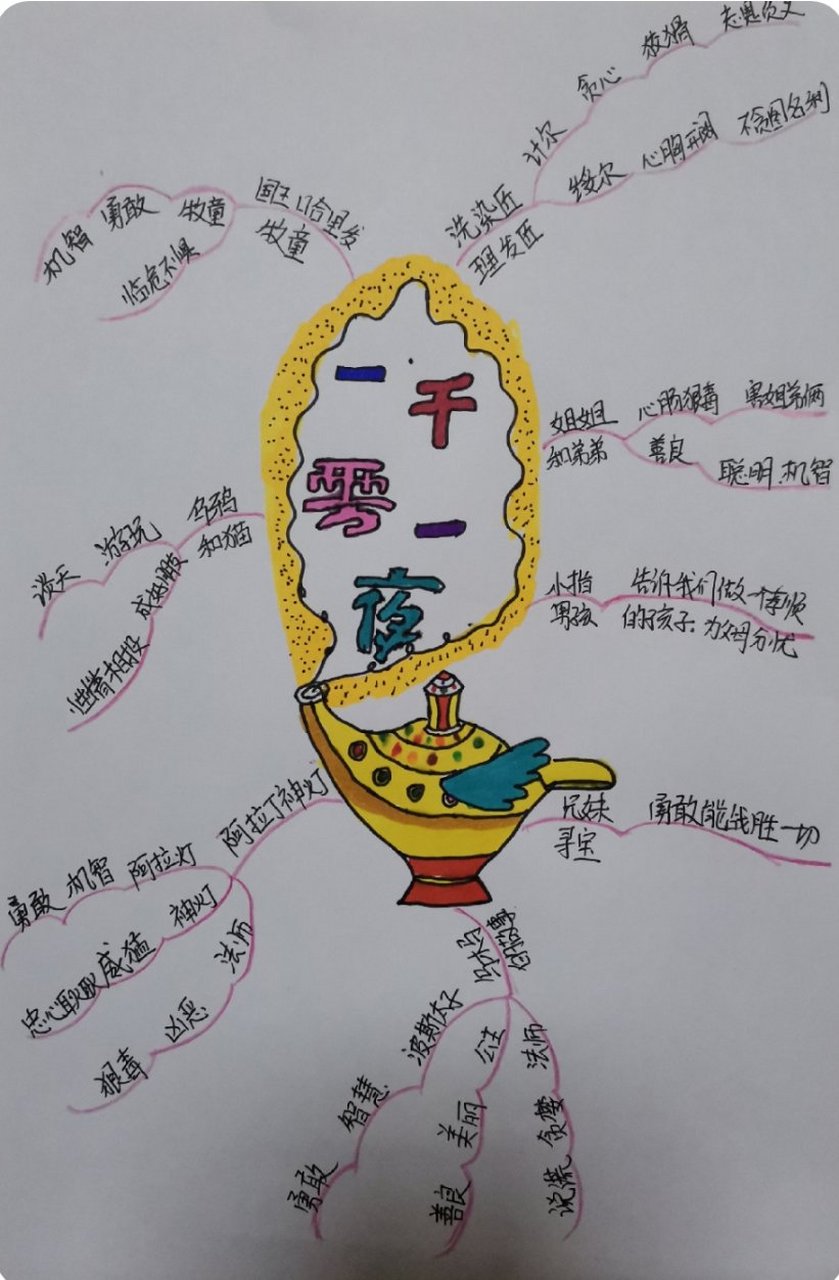 一千零一夜
洗染匠
理发匠
计尔
贪心
狡猾
心胸开阔
不贪图名利
姐姐
和弟弟
心肠狠毒
害姐弟俩
善良
聪明、机智
小指
男孩
告诉我们做一个孝顺
的孩子,为父母分忧
兄妹
寻宝
勇敢能战胜一切
波斯太子
智慧
勇敢
公主
美丽
善良
法师
贪婪
阿拉丁神灯
阿拉灯
机智
勇敢
神灯
威猛
忠心耿耿
法师
凶恶
狠毒
乌鸦
和猫
游玩
谈天
性情相投
国王哈里发
牧童
牧童
勇敢
机智
临危不惧